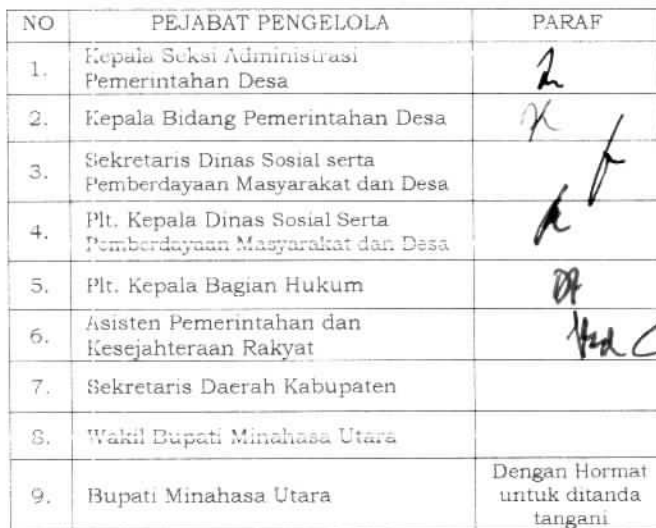 NO PEJABAT PENGELOLA PARAF
1. Kepala Seksi Administrasi
Pemerintahan Desa
2. Kepala Bidang Pemerintahan Desa
3. Sekretaris Dinas Sosial serta
Pemberdayaan Masyarakat dan Desa
4. Plt. Kepala Dinas Sosial Serta
Pemberdayaan Masyarakat dan Desa
5. Plt. Kepala Bagian Hukum
6. Asisten Pemerintahan dan
Kesejahteraan Rakyat
7. Sekretaris Daerah Kabupaten
8. Wakil Bupati Minahasa Utara
9. Bupati Minahasa Utara
Dengan Hormat
untuk ditanda
tangani